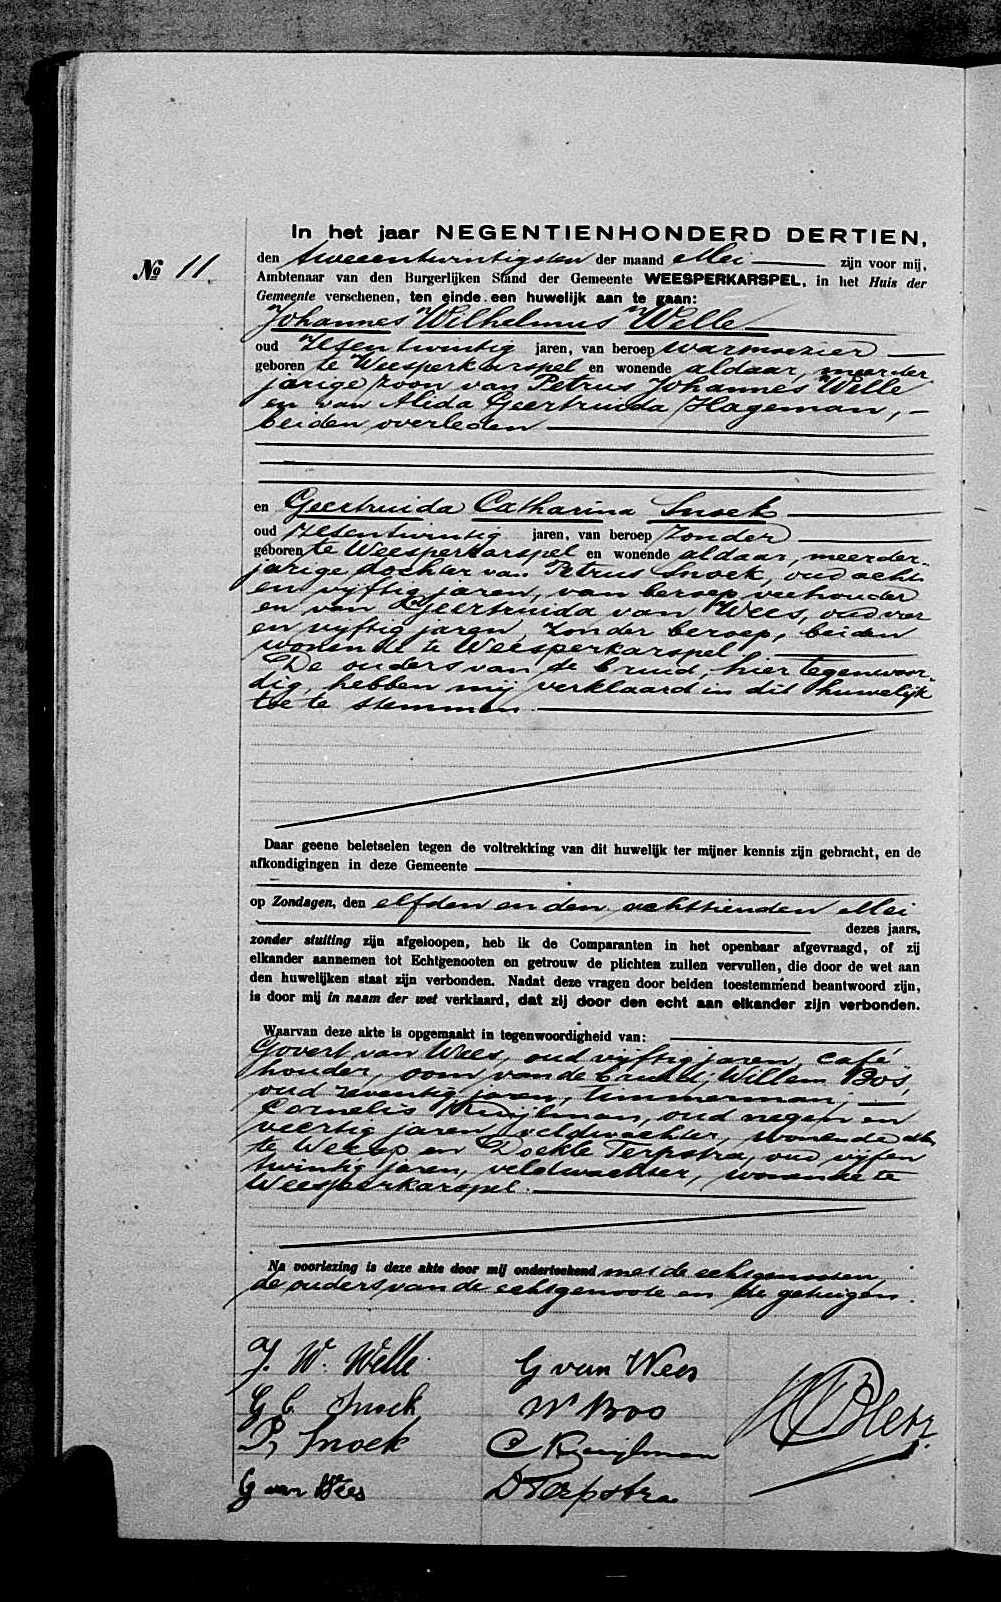 In het jaar NEGENTIENHONDERD DERTIEN,
Nº 11
den tweeentwintigsten der maand Mei zijn voor mij,
Ambtenaar van den Burgerlijken Stand der Gemeente WEESPERKARSPEL, in het Huis der
Gemeente verschenen, ten einde een huwelijk aan te gaan:
Johannes Wilhelmus Welle
oud Zesentwintig jaren, van beroep warmoezier
geboren te Weesperkarspel en wonende aldaar, meerder
jarige zoon van Petrus Johannes Welle
en van Alida Geertruida Hageman,
beiden overleden
en Geertruida Catharina Snoek
oud Zesentwintig jaren, van beroep Zonder
geboren te Weesperkarspel en wonende aldaar, meerder-
jarige dochter van Petrus Snoek, oud acht
en vijftig jaren, van beroep veehouder
en van Geertruida van Wees, oud vier
en vijftig jaren, zonder beroep, beiden
wonende te Weesperkarspel
De ouders van de bruid, hier tegenwoor-
dig, hebben mij verklaard in dit huwelijk
toe te stemmen
Daar geene beletselen tegen de voltrekking van dit huwelijk ter mijner kennis zijn gebracht, en de
afkondigingen in deze Gemeente
op Zondagen, den elfden en den achttienden Mei
dezes jaars,
zonder stuiting zijn afgeloopen, heb ik de Comparanten in het openbaar afgevraagd, of zij
elkander aannemen tot Echtgenooten en getrouw de plichten zullen vervullen, die door de wet aan
den huwelijken staat zijn verbonden. Nadat deze vragen door beiden toestemmend beantwoord zijn,
is door mij in naam der wet verklaard, dat zij door den echt aan elkander zijn verbonden.
Waarvan deze akte is opgemaakt in tegenwoordigheid van:
Govert van Wees, oud vijftig jaren, café
houder, oom van de bruid; Willem Bos,
oud zeventig jaren, timmerman;
Cornelis Kruijlman, oud negen en
veertig jaren, veldwachter, wonende
te Weesp en Doekle Terpstra, oud vijfen
twintig jaren, veldwachter, wonende te
Weesperkarspel.
Na voorlezing is deze akte door mij onderteekend met de echtgenooten,
de ouders van de echtgenoote en de getuigen.
J. W. Welle G van Wees
G C Snoek W Bos
P, Snoek C Kruijlman
G van Wees D Terpstra